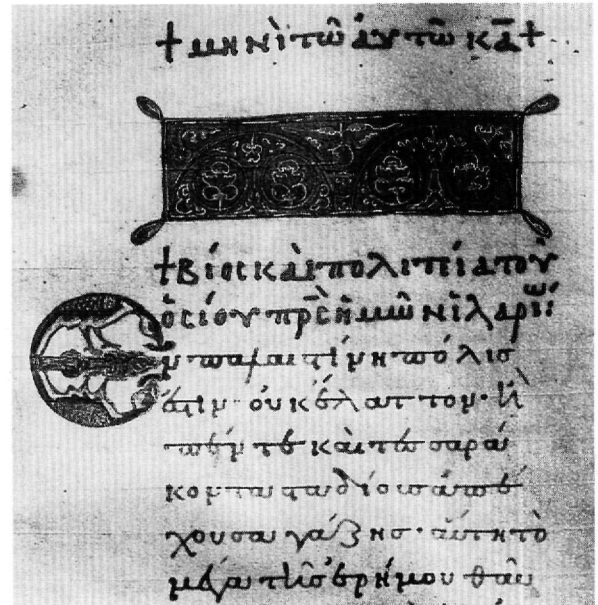 + μηνὶ τῶ ἀυτῶ κα +
+ Βίος καὶ πολιτεία τοῦ
ὁσίου πρς ἡμῶν ἱλαρίω
Ἐν παλαιστίνη πόλισ
ἐστιν· οὐκ ἔλαττον· ἢ
πέντε καὶ τεσσαρά
κοντα σταδίουσ ἀπέ
χουσα γάζησ· αὕτη τὸ
μέγα τῆσ ἐρήμου θαῦ